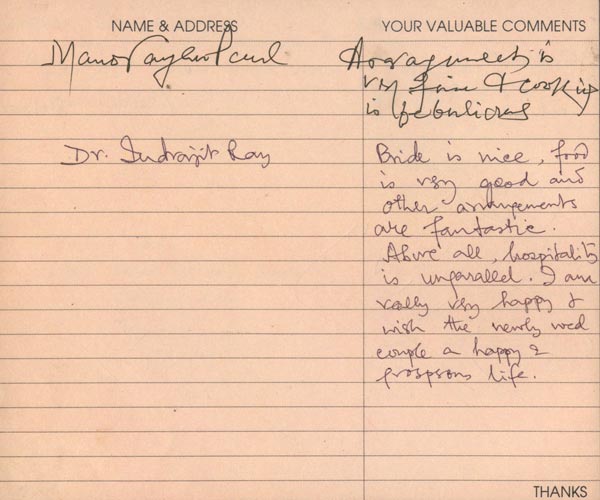 NAME & ADDRESS
YOUR VALUABLE COMMENTS
Paul
Arragements is
very fine & cooking
is febulious
Dr. Indrajit Ray
Bride is nice, food
is very good and
other arrangements
are fantastic.
Above all, hospitality
is unparalled. I am
really very happy &
wish the newly wed
couple a happy &
prosperous life.
THANKS